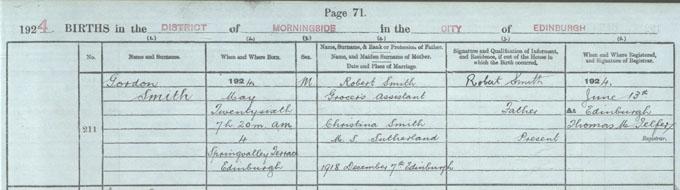 Page 71.
1924 BIRTHS in the DISTRICT of MORNINGSIDE in the CITY of EDINBURGH
(1.) (2.) (3.) (4.) (5.) (6.)
No. Name and Surname. When and Where Born. Sex. Name, Surname, & Rank or Profession of Father. Name, and Maiden Surname of Mother. Date and Place of Marriage. Signature and Qualification of Informant, and Residence, if out of the House in which the Birth occurred. When and Where Registered, and Signature of Registrar.
Gordon 1924, M Robert Smith Robert Smith 1924,
Smith May Grocer's Assistant June 13th
Twentysixth Father At Edinburgh
211 7h 20m. am Christina Smith Thomas M. Telfer
4 M. S. Sutherland Present Registrar.
Springvalley Terrace
Edinburgh 1918 December 7th Edinburgh